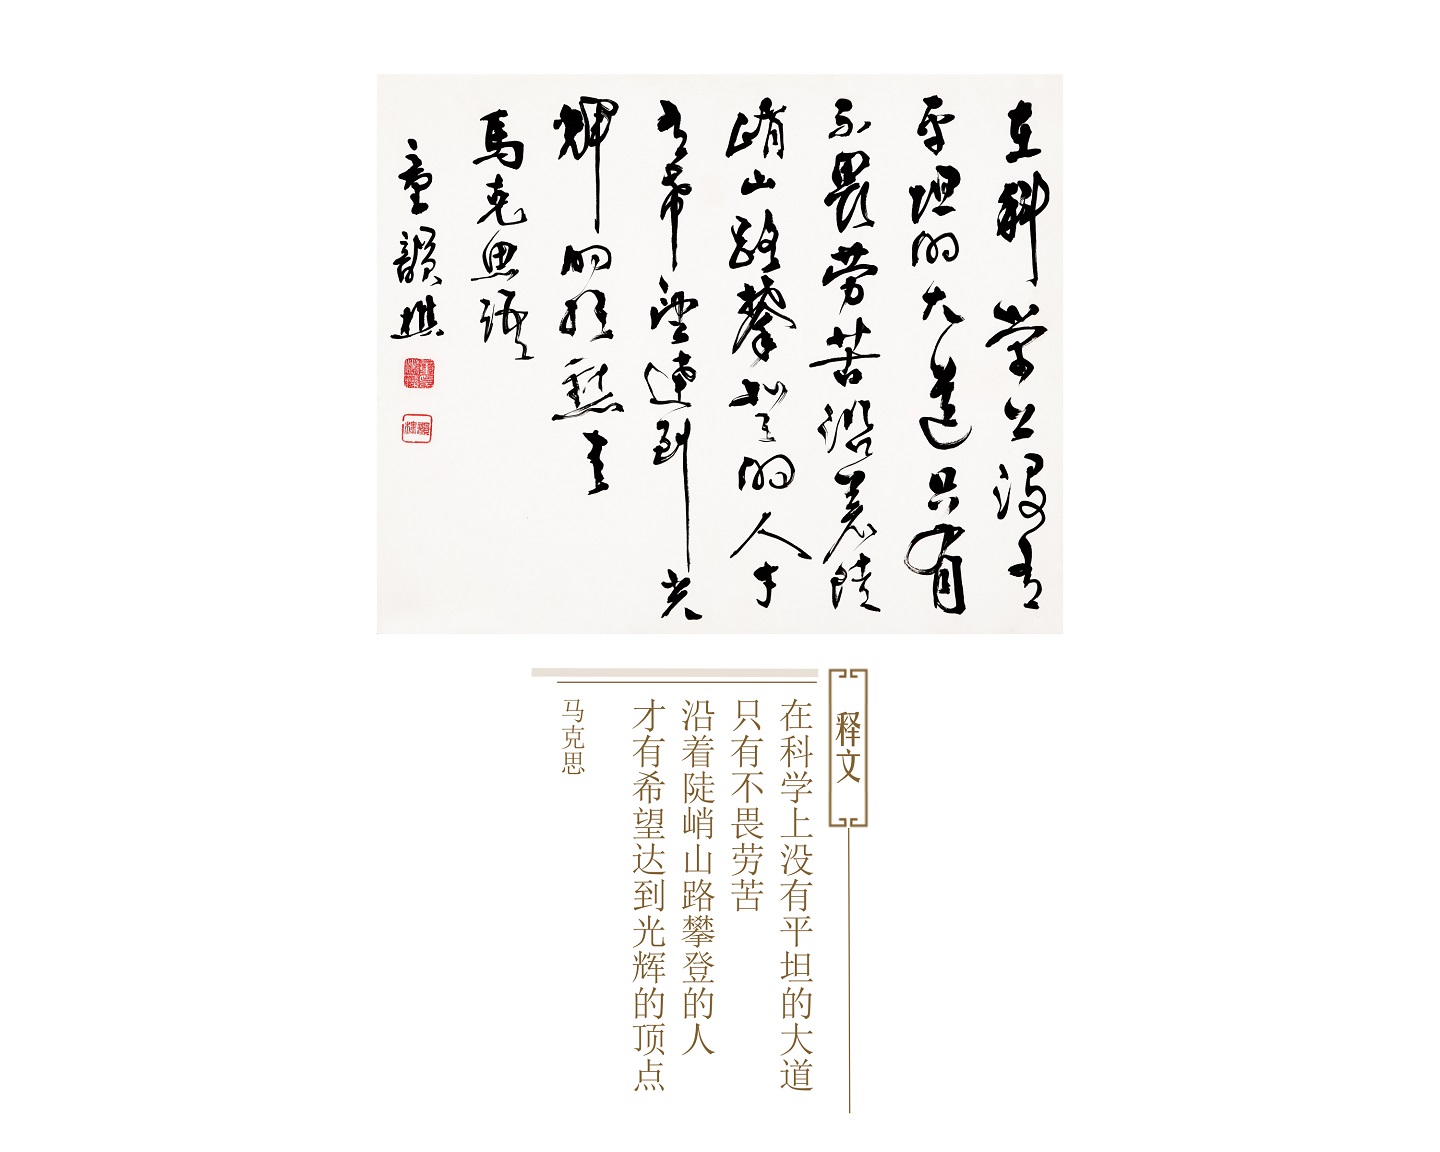 在科学上没有
平坦的大道只有
不畏劳苦沿着陡
峭山路攀登的人才
有希望達到光
輝的顶點
馬克思語
童韻樵
释文
在科学上没有平坦的大道
只有不畏劳苦
沿着陡峭山路攀登的人
才有希望达到光辉的顶点
马克思